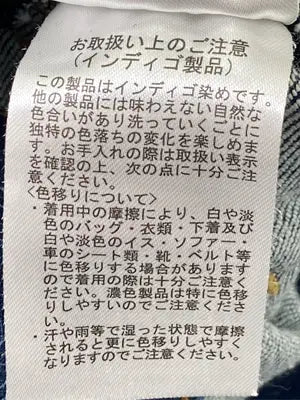 お取扱い上のご注意
(インディゴ製品)
この製品はインディゴ染めです。
他の製品には味わえない自然な
色合いがあり洗っていくごとに
独特の色落ちの変化を楽しめま
す。お手入れの際は取扱い表示
を確認の上、次の点に十分ご注
意ください。
<色移りについて>
・着用中の摩擦により、白や淡
色のバッグ・衣類・下着及び
白や淡色のイス・ソファー・
車のシート類・靴・ベルト等
に色移りする場合があります
ので着用の際は十分ご注意く
ださい。濃色製品は特に色移
りしやすいのでご注意くださ
い。
・汗や雨等で湿った状態で摩擦
されると更に色移りしやすく
なりますのでご注意ください。